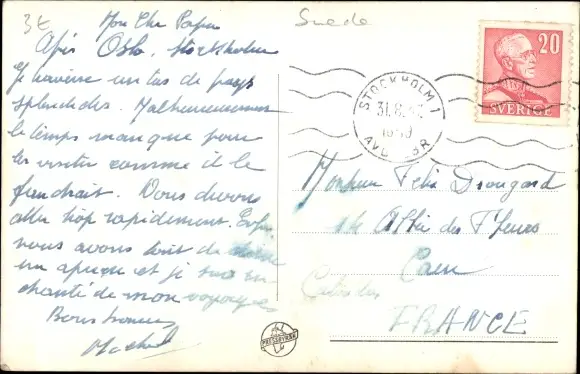 3€
Suède
Mon Cher Papa
Après Oslo, Stockholm
Je traverse un tas de pays
splendides. Malheureusement
le temps manque pour
les visiter comme il le
faudrait. Nous devons
aller trop rapidement. Enfin
nous avons tout de même
un aperçu et je suis en-
chanté de mon voyage
Bons baisers
20
SVERIGE
STOCKHOLM 1
31.8.
AVG
Monsieur Felix Drougard
Allée des Fleurs
Caen
Calvados
FRANCE
PRESSBYRÅN